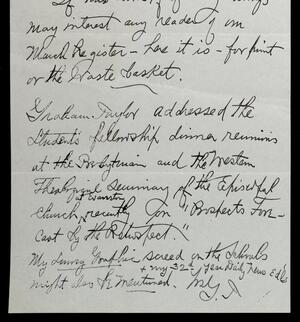 may interest any reader of our
March Register - here it is - for print
or the Waste basket.
Graham Taylor addressed the
Students fellowship dinner reunions
at the Presbyterian and the Western
Theological Seminary of the Episcopal
Church, at Evanston recently on "Prospects Fore-
cast by the Retrospect."
My Survey Graphic screed on the Schools
+ my 32d year Daily News Ed'ls
might also be mentioned. G.T.